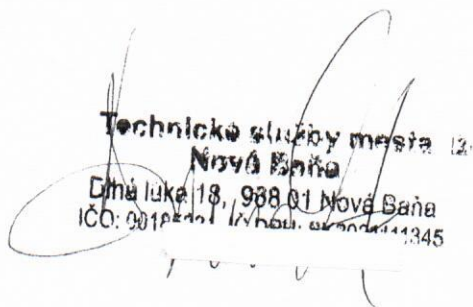 Technické služby mesta
Nová Baňa
Dlhá lúka 18, 968 01 Nová Baňa
IČO: